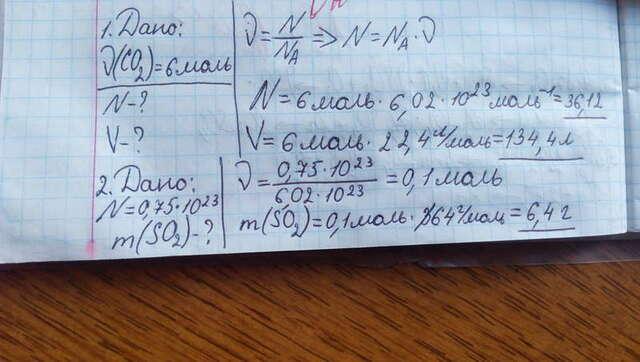 1. Дано:
ν(CO₂)=6 моль
N-?
V-?
ν=N/N_A ⟹ N=N_A·ν
N=6 моль·6,02·10²³ моль⁻¹=36,12
V=6 моль·22,4 л/моль=134,4 л
2. Дано:
N=0,75·10²³
m(SO₂)-?
ν=0,75·10²³/6,02·10²³=0,1 моль
m(SO₂)=0,1 моль·64 г/моль=6,4 г